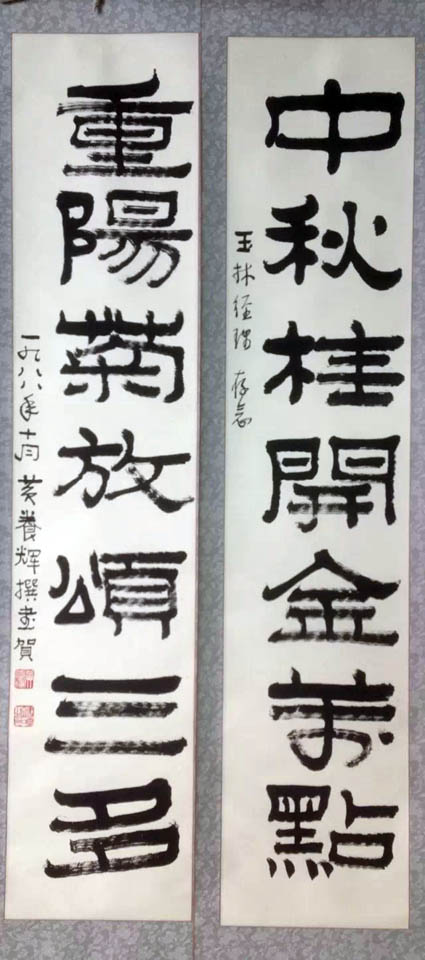 中秋桂開金萬點
玉林经理 存念
重陽菊放頌三多
一九八八年十月 黄養輝撰書賀